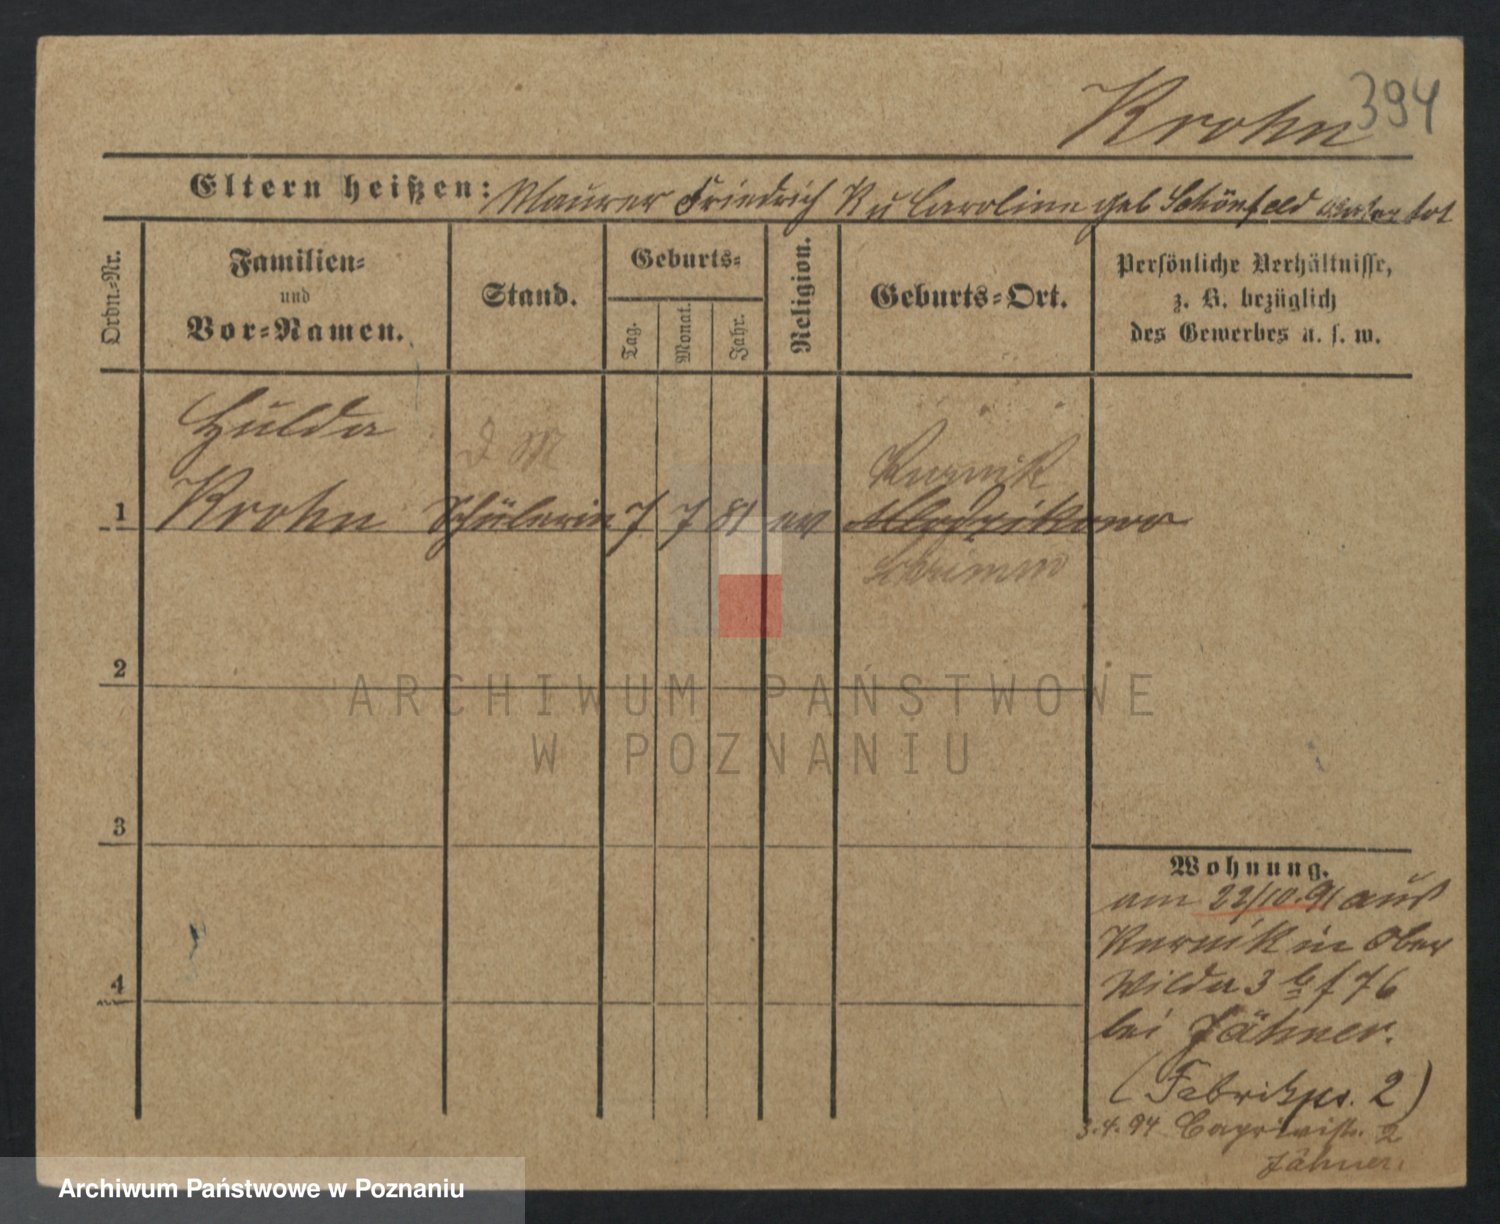 Krohn 394
Eltern heißen: Maurer Friedrich K u Caroline geb Schönfeld Vater tot
Ordn.-Nr.
Familien-
und
Vor-Namen.
Stand.
Geburts-
Tag.
Monat.
Jahr.
Religion.
Geburts-Ort.
Persönliche Verhältnisse,
z. B. bezüglich
des Gewerbes u. s. w.
Hulda
d M
Kurnik
1 Krohn Schülerin 7 7 81 ev
Schrimm
2
3
4
Wohnung.
am 22/10.91 aus
Kurnik in Ober
Wilda 3 b f 76
bei Jähner.
(Fabrikstr. 2)
3.4.94 Caprivistr. 2
Jähner.
ARCHIWUM PAŃSTWOWE
W POZNANIU
Archiwum Państwowe w Poznaniu